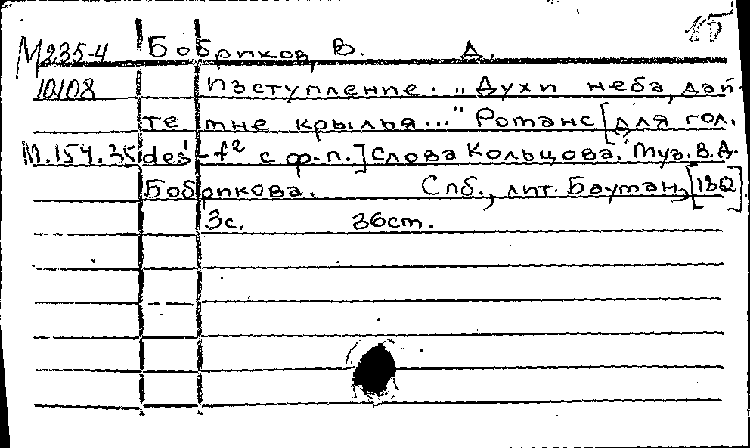 15
М235-4 Бобриков, В. А.
10108 Изступление. „Духи неба, дай-
те мне крылья..." Романс [для гол.
М.154.35 des¹-f² с ф.п.] Слова Кольцова. Муз. В.А.
Бобрикова. Спб., лит. Бауман, [18
3с. 36ст.